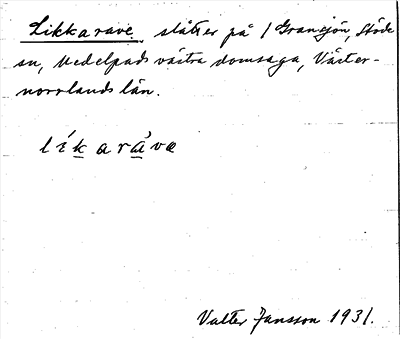 Likkarave. slåtter på / Gransjön, Stöde
sn, Medelpads västra domsaga, Väster-
norrlands län.
líkaráva
Valter Jansson 1931.